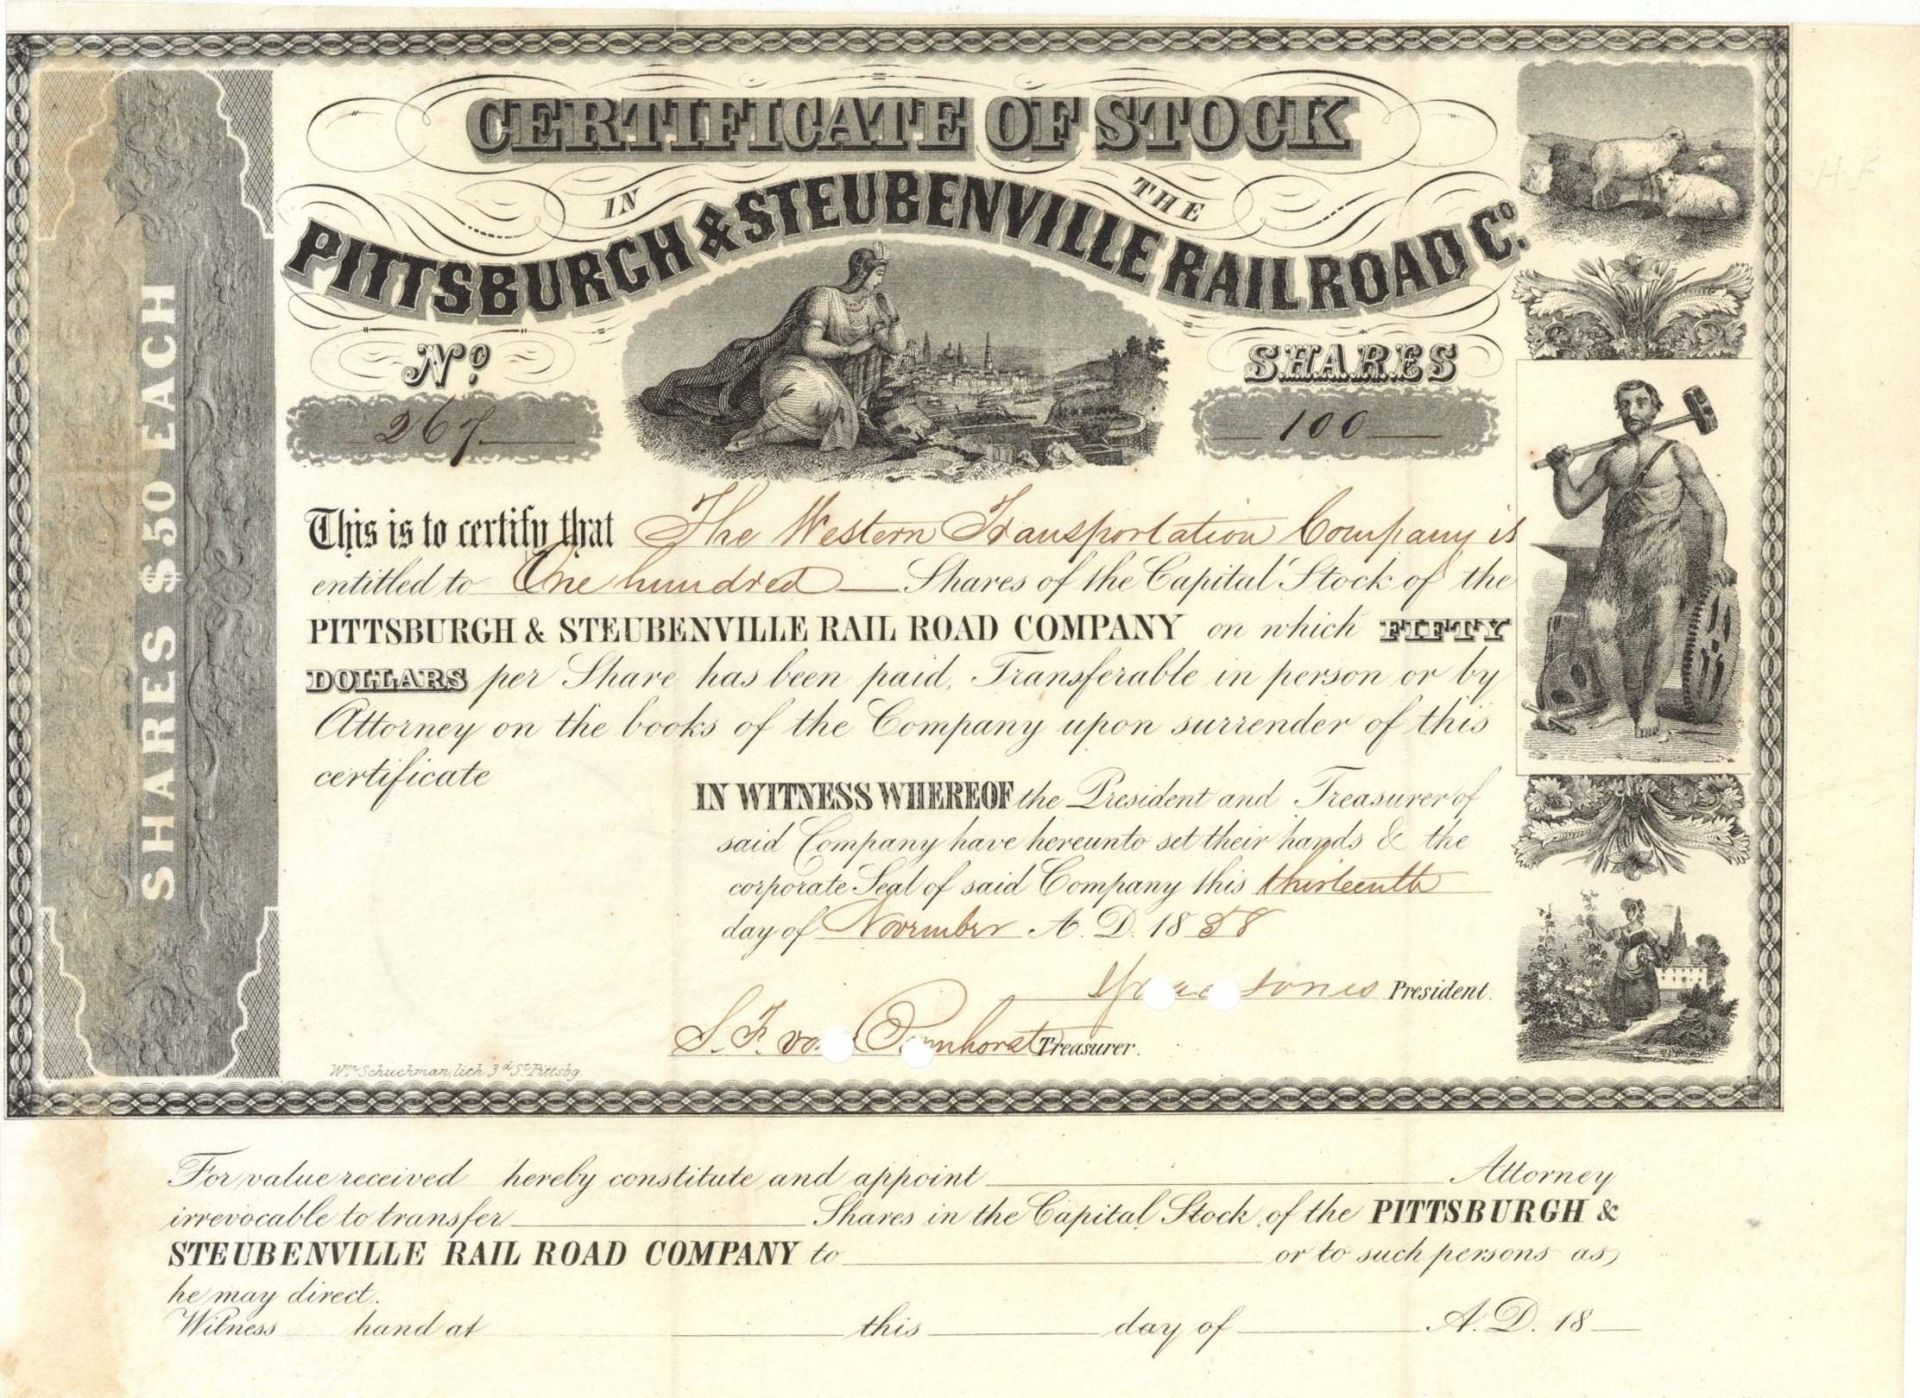 CERTIFICATE OF STOCK
IN THE
PITTSBURGH & STEUBENVILLE RAIL ROAD Cº.
Nº
267
SHARES
100
SHARES $50 EACH
This is to certify that The Western Transportation Company is
entitled to One hundred Shares of the Capital Stock of the
PITTSBURGH & STEUBENVILLE RAIL ROAD COMPANY on which FIFTY
DOLLARS per Share has been paid, Transferable in person or by
Attorney on the books of the Company upon surrender of this
certificate
IN WITNESS WHEREOF the President and Treasurer of
said Company have hereunto set their hands & the
corporate Seal of said Company this thirteenth
day of November A. D. 1858
Jones President.
S. F. Treasurer.
Wm. Schuchman, lith 3d St. Pittsbg
For value received hereby constitute and appoint Attorney
irrevocable to transfer Shares in the Capital Stock of the PITTSBURGH &
STEUBENVILLE RAIL ROAD COMPANY to or to such persons as
he may direct.
Witness hand at this day of A. D. 18